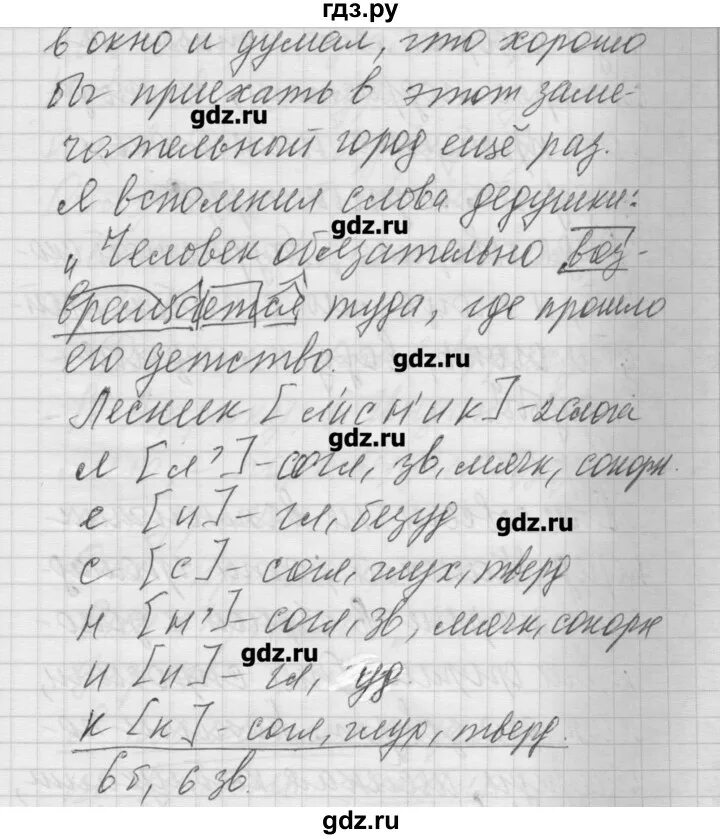 гдз.ру
в окно и думал, что хорошо
бы приехать в этот заме-
gdz.ru
чательный город ещё раз.
Я вспомнил слова дедушки:
gdz.ru
„Человек обязательно воз-
вращается туда, где прошло
его детство.
gdz.ru
Лесник [л'исн'ик] - 2 слога
gdz.ru
л [л'] - согл, зв, мягк, сонорн.
е [и] - гл, безуд
gdz.ru
с [с] - согл, глух, тверд
н [н'] - согл, зв, мягк, сонорн
gdz.ru
и [и] - гл, уд.
к [к] - согл, глух, тверд.
6 б, 6 зв.
gdz.ru